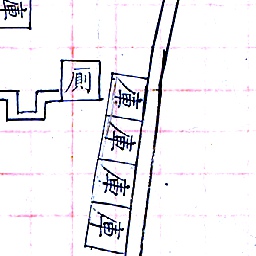 庫
厠
庫
庫
庫
庫